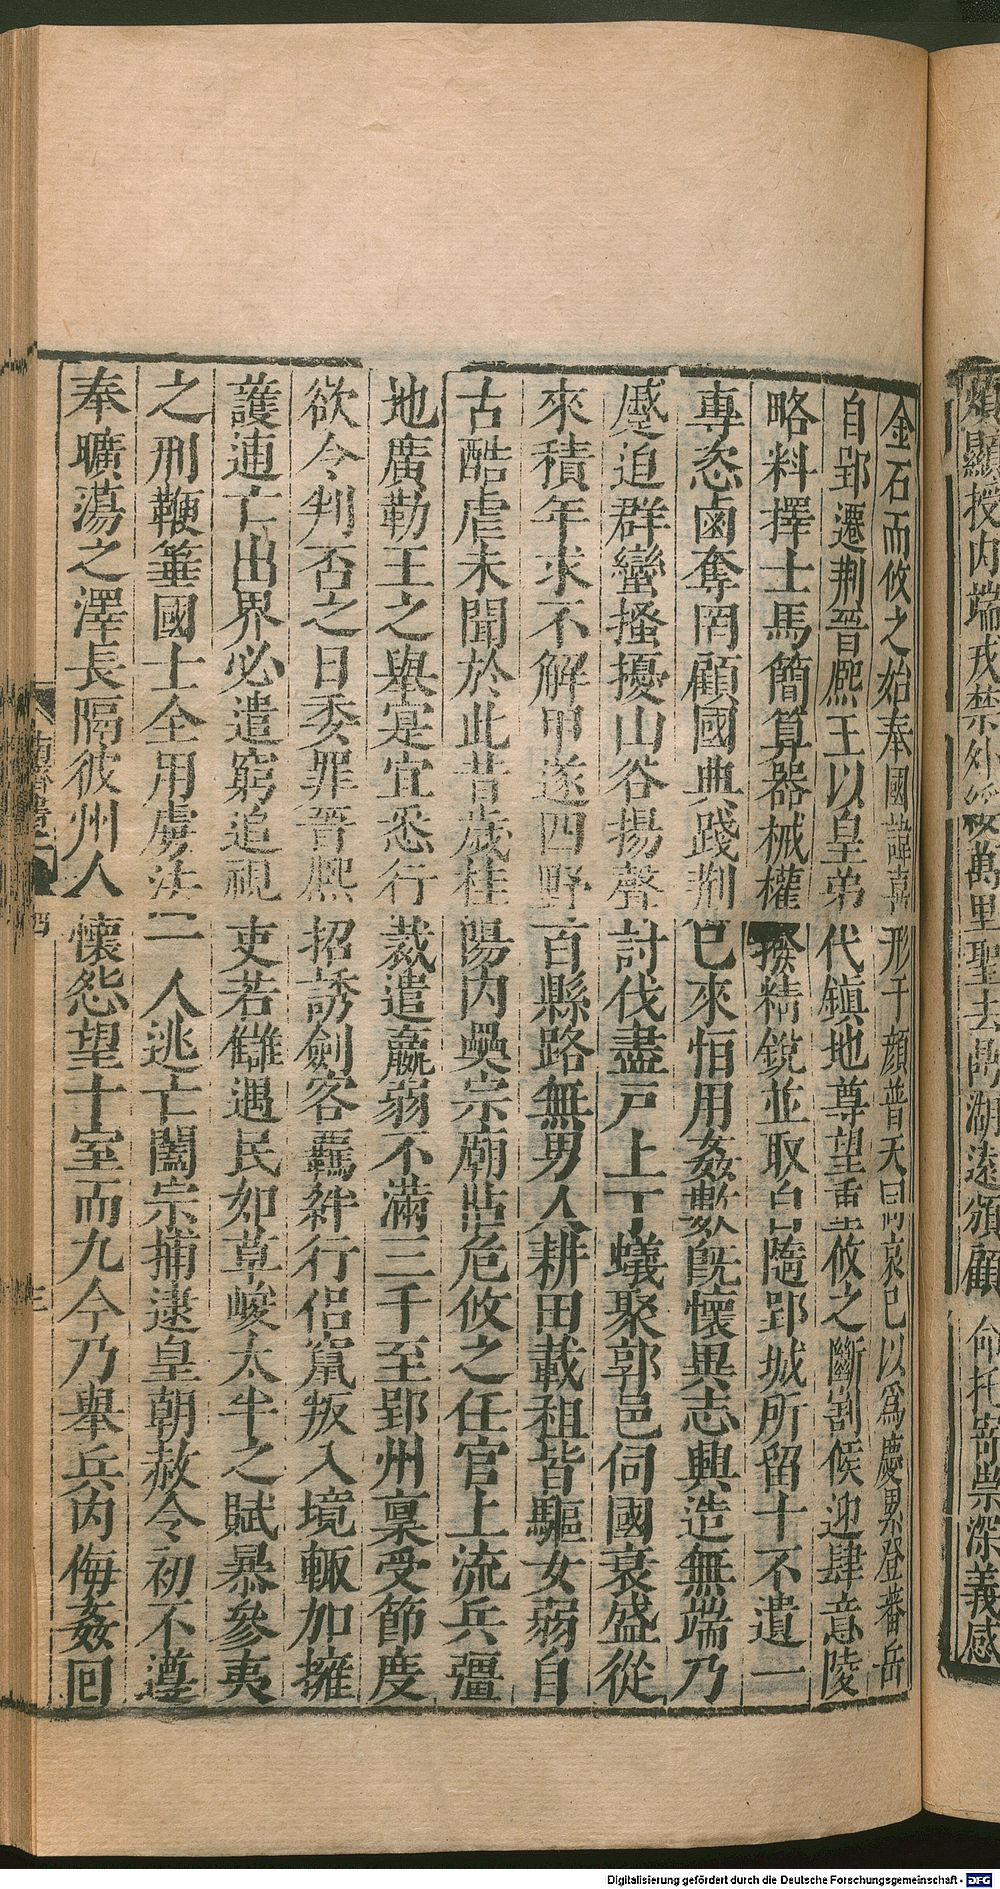 金石而攸之始奉國諱喜形于顔普天同哀己以爲慶累登蕃岳
自郢遷荆晉熙王以皇弟代鎮地尊望重攸之斷割候迎肆意陵
略料擇士馬簡算器械權撥精鋭並取自隨郢城所留十不遺一
專恣鹵奪罔顧國典踐荆已來恒用姦數既懷異志興造無端乃
蹙迫群蠻搔擾山谷揚聲討伐盡户上丁蟻聚郭邑伺國衰盛從
來積年求不解甲遂四野百縣路無男人耕田載租皆驅女弱自
古酷虐未聞於此昔歲桂陽内㚁宗廟阽危攸之任官上流兵彊
地廣勒王之舉寔宜悉行裁遣羸弱不滿三千至郢州禀受節度
欲令判否之日委罪晉熙招誘劍客羈絆行侣竄叛入境輒加擁
護逋亡出界必遣窮追視吏若讎遇民如草峻太半之賦暴參夷
之刑鞭箠國士全用虜法一人逃亡闔宗捕逮皇朝赦令初不遵
奉曠蕩之澤長隔彼州人懷怨望十室而九今乃舉兵内侮姦回
顯授内端戎禁外綏萬里聖去鼎湖遠頒顧命托寄崇深義感
Digitalisierung gefördert durch die Deutsche Forschungsgemeinschaft - DFG